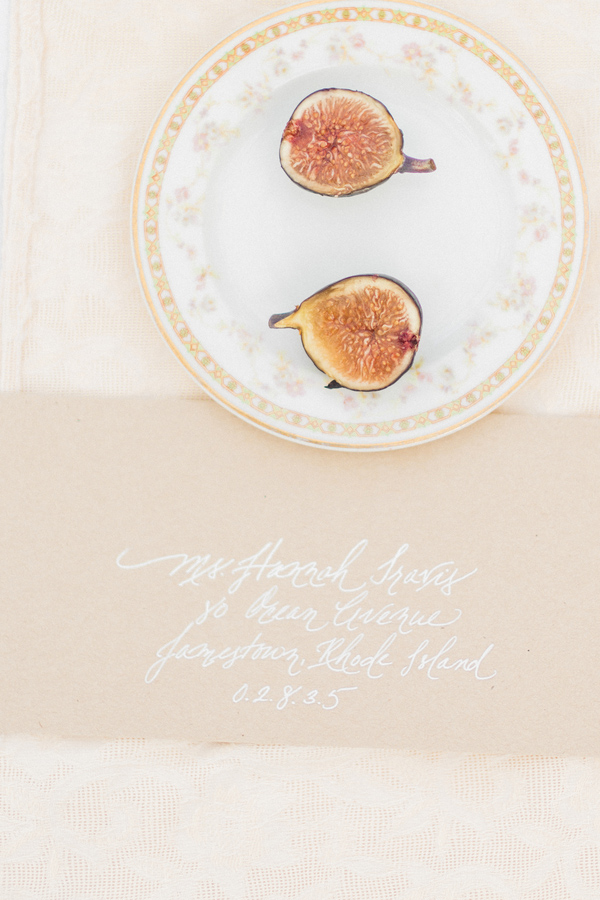 Ms. Hannah Travis
80 Ocean Avenue
Jamestown, Rhode Island
0.2.8.3.5